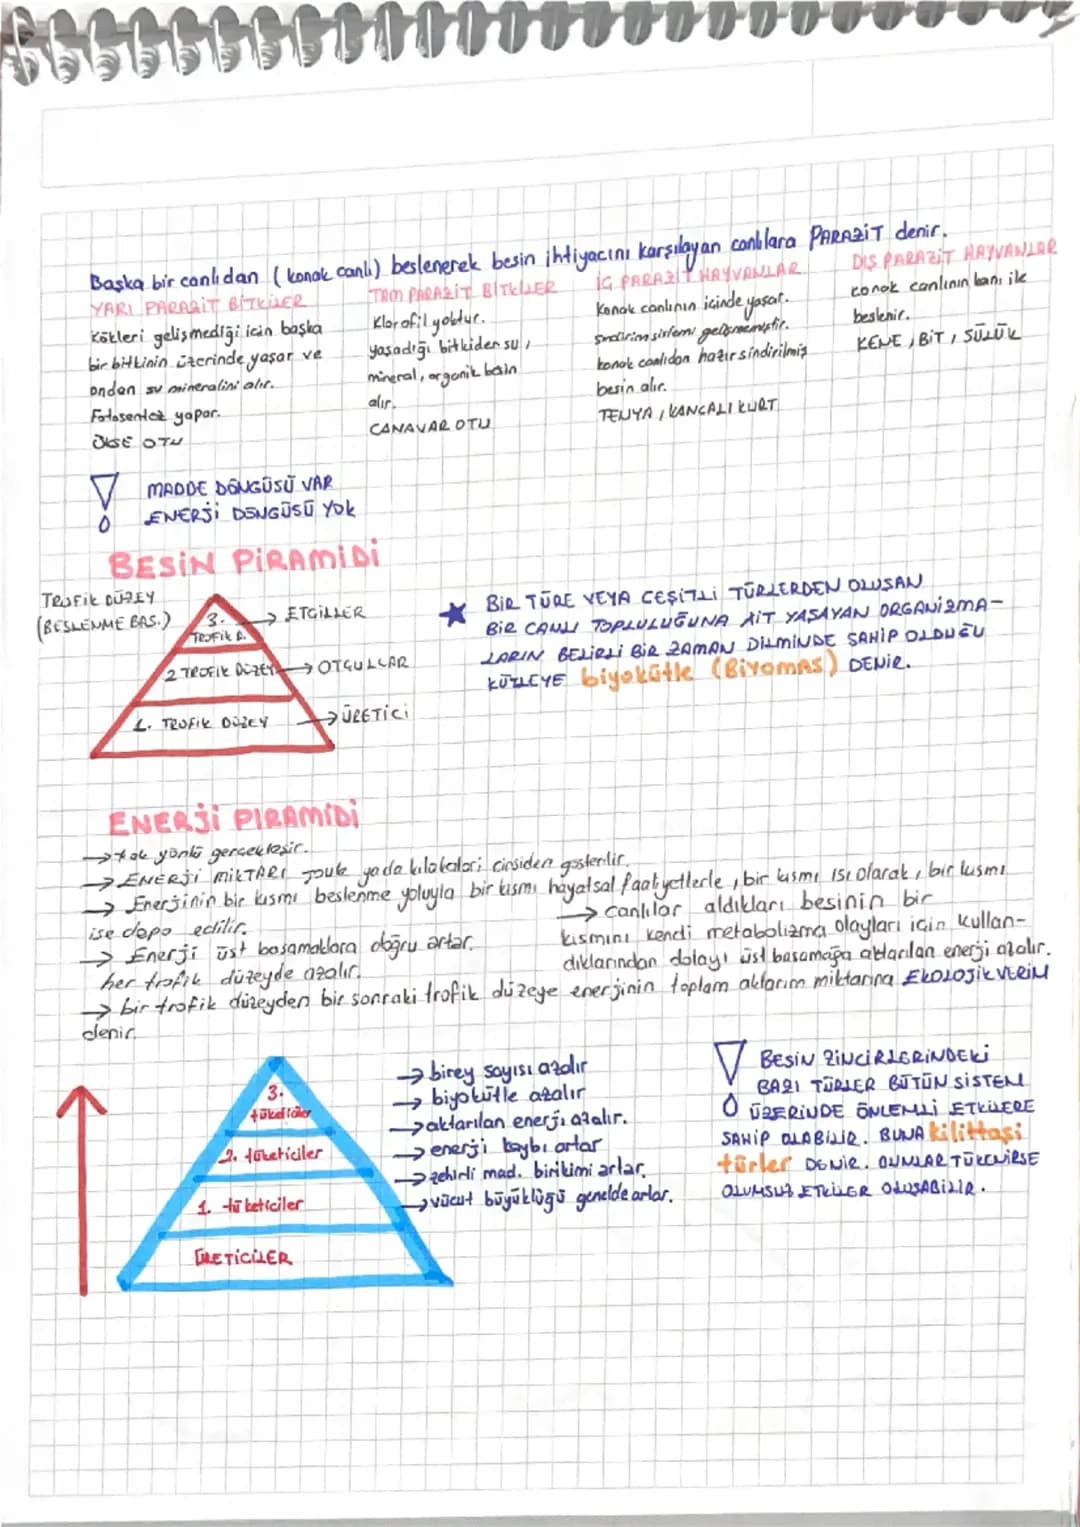 Başka bir canlıdan (konak canlı) beslenerek besin ihtiyacını karşılayan canlılara PARAZİT denir.
YARI PARAZİT BİTKİLER
Kökleri gelişmediği için başka
bir bitkinin üzerinde yaşar ve
ondan su mineralini alır.
Fotosentez yapar.
ÖKSE OTU
TAM PARAZİT BİTKİLER
Klorofil yoktur.
yaşadığı bitkiden su,
mineral, organik besin
alır.
CANAVAR OTU
İÇ PARAZİT HAYVANLAR
Konak canlının içinde yaşar.
Sindirim sistemi gelişmemiştir.
konak canlıdan hazır sindirilmiş
besin alır.
TENYA, KANCALI KURT
DIŞ PARAZİT HAYVANLAR
conak canlının kanı ile
beslenir.
KENE, BİT, SÜLÜK
MADDE DÖNGÜSÜ VAR
ENERJİ DÖNGÜSÜ YOK
BESİN PİRAMİDİ
TROFİK DÜZEY
(BESLENME BAS.)
3. → ETÇİLLER
TROFİK D.
2 TROFİK DÜZEY → OTÇULLAR
1. TROFİK DÜZEY → ÜRETİCİ
★ BİR TÜRE VEYA ÇEŞİTLİ TÜRLERDEN OLUŞAN
BİR CANLI TOPLULUĞUNA AİT YAŞAYAN ORGANİZMA-
LARIN BELİRLİ BİR ZAMAN DİLMİNDE SAHİP OLDUĞU
KÜTLEYE biyokütle (BİYOMAS) DENİR.
ENERJİ PİRAMİDİ
→ tek yönlü gerçekleşir.
→ ENERJİ MİKTARI Joule ya da kilokalori cinsiden gösterilir.
→ Enerjinin bir kısmı beslenme yoluyla bir kısmı hayatsal faaliyetlerle, bir kısmı ısı olarak, bir kısmı
ise depo edilir.
→ Enerji üst basamaklara doğru artar.
her trofik düzeyde azalır.
→ canlılar aldıkları besinin bir
kısmını kendi metabolizma olayları için kullan-
dıklarından dolayı üst basamağa aktarılan enerji azalır.
→ bir trofik düzeyden bir sonraki trofik düzeye enerjinin toplam aktarım miktarına EKOLOJİK VERİM
denir.
3.
tüketiciler
2. tüketiciler
1. tüketiciler
ÜRETİCİLER
→ birey sayısı azalır
→ biyokütle azalır
→ aktarılan enerji azalır.
→ enerji kaybı artar
→ zehirli mad. birikimi artar.
→ vücut büyüklüğü genelde artar.
BESİN ZİNCİRLERİNDEKİ
BAZI TÜRLER BÜTÜN SİSTEM
ÜZERİNDE ÖNLEMLİ ETKİLERE
SAHİP OLABİLİR. BUNA kilittaşı
türler DENİR. BUNLAR TÜKENİRSE
OLUMSUZ ETKİLER OLUŞABİLİR.